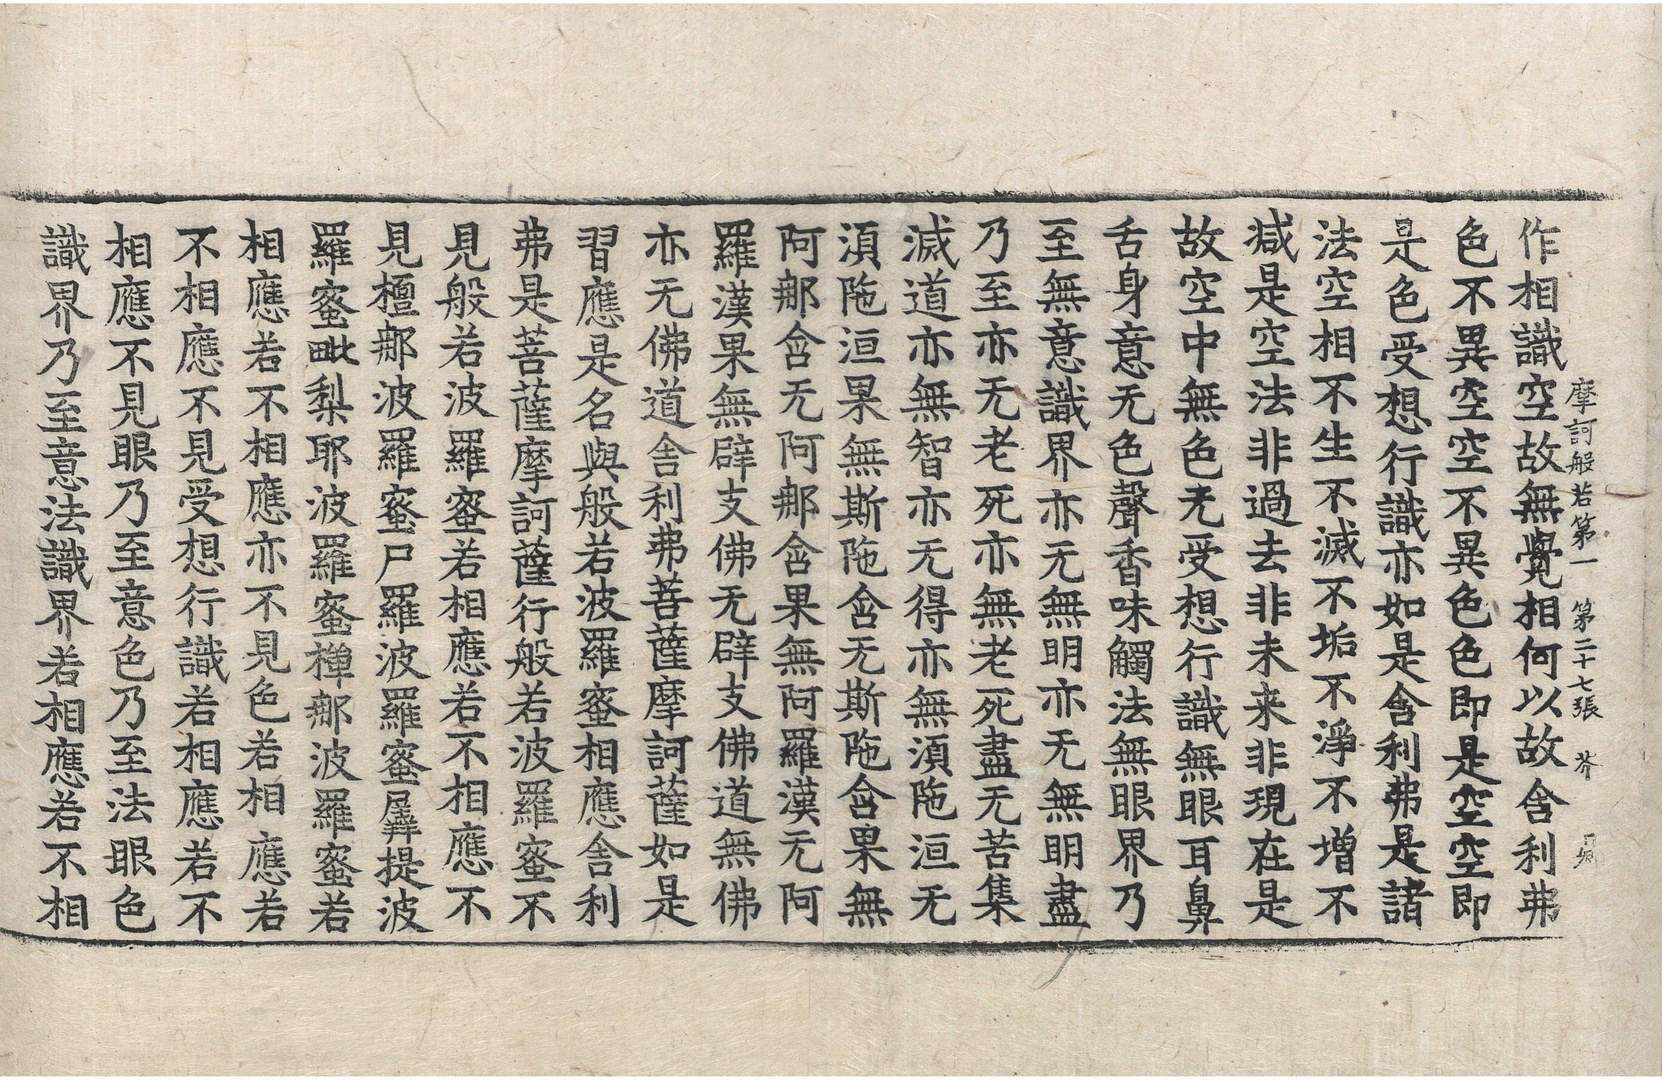 摩訶般若第一 第二十七張 芥
作相識空故無覺相何以故舍利弗
色不異空空不異色色即是空空即
是色受想行識亦如是舍利弗是諸
法空相不生不滅不垢不淨不增不
減是空法非過去非未來非現在是
故空中無色无受想行識無眼耳鼻
舌身意无色聲香味觸法無眼界乃
至無意識界亦无無明亦无無明盡
乃至亦无老死亦無老死盡无苦集
滅道亦無智亦无得亦無湏陁洹无
湏陁洹果無斯陁含无斯陁含果無
阿那含无阿那含果無阿羅漢无阿
羅漢果無辟支佛无辟支佛道無佛
亦无佛道舍利弗菩薩摩訶薩如是
習應是名與般若波羅蜜相應舍利
弗是菩薩摩訶薩行般若波羅蜜不
見般若波羅蜜若相應若不相應不
見檀那波羅蜜尸羅波羅蜜羼提波
羅蜜毗梨耶波羅蜜禪那波羅蜜若
相應若不相應亦不見色若相應若
不相應不見受想行識若相應若不
相應不見眼乃至意色乃至法眼色
識界乃至意法識界若相應若不相